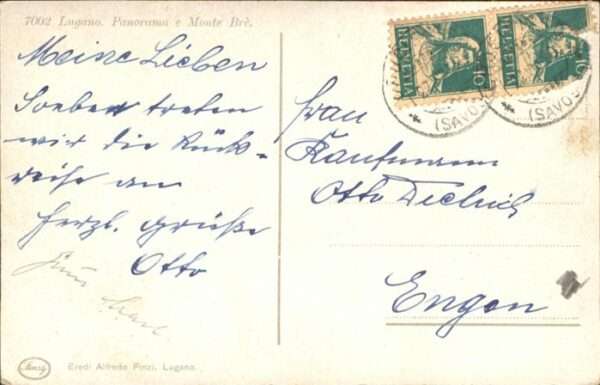 7002 Lugano. Panorama e Monte Brè.
Meine Lieben
Soeben treten
wir die Rück-
reise an
herzl. grüße
Otto
HELVETIA 10
HELVETIA 10
(SAVOS
(SAVOS
Frau
Kaufmann
Otto Dietrich
Engen
Eredi Alfredo Finzi. Lugano.